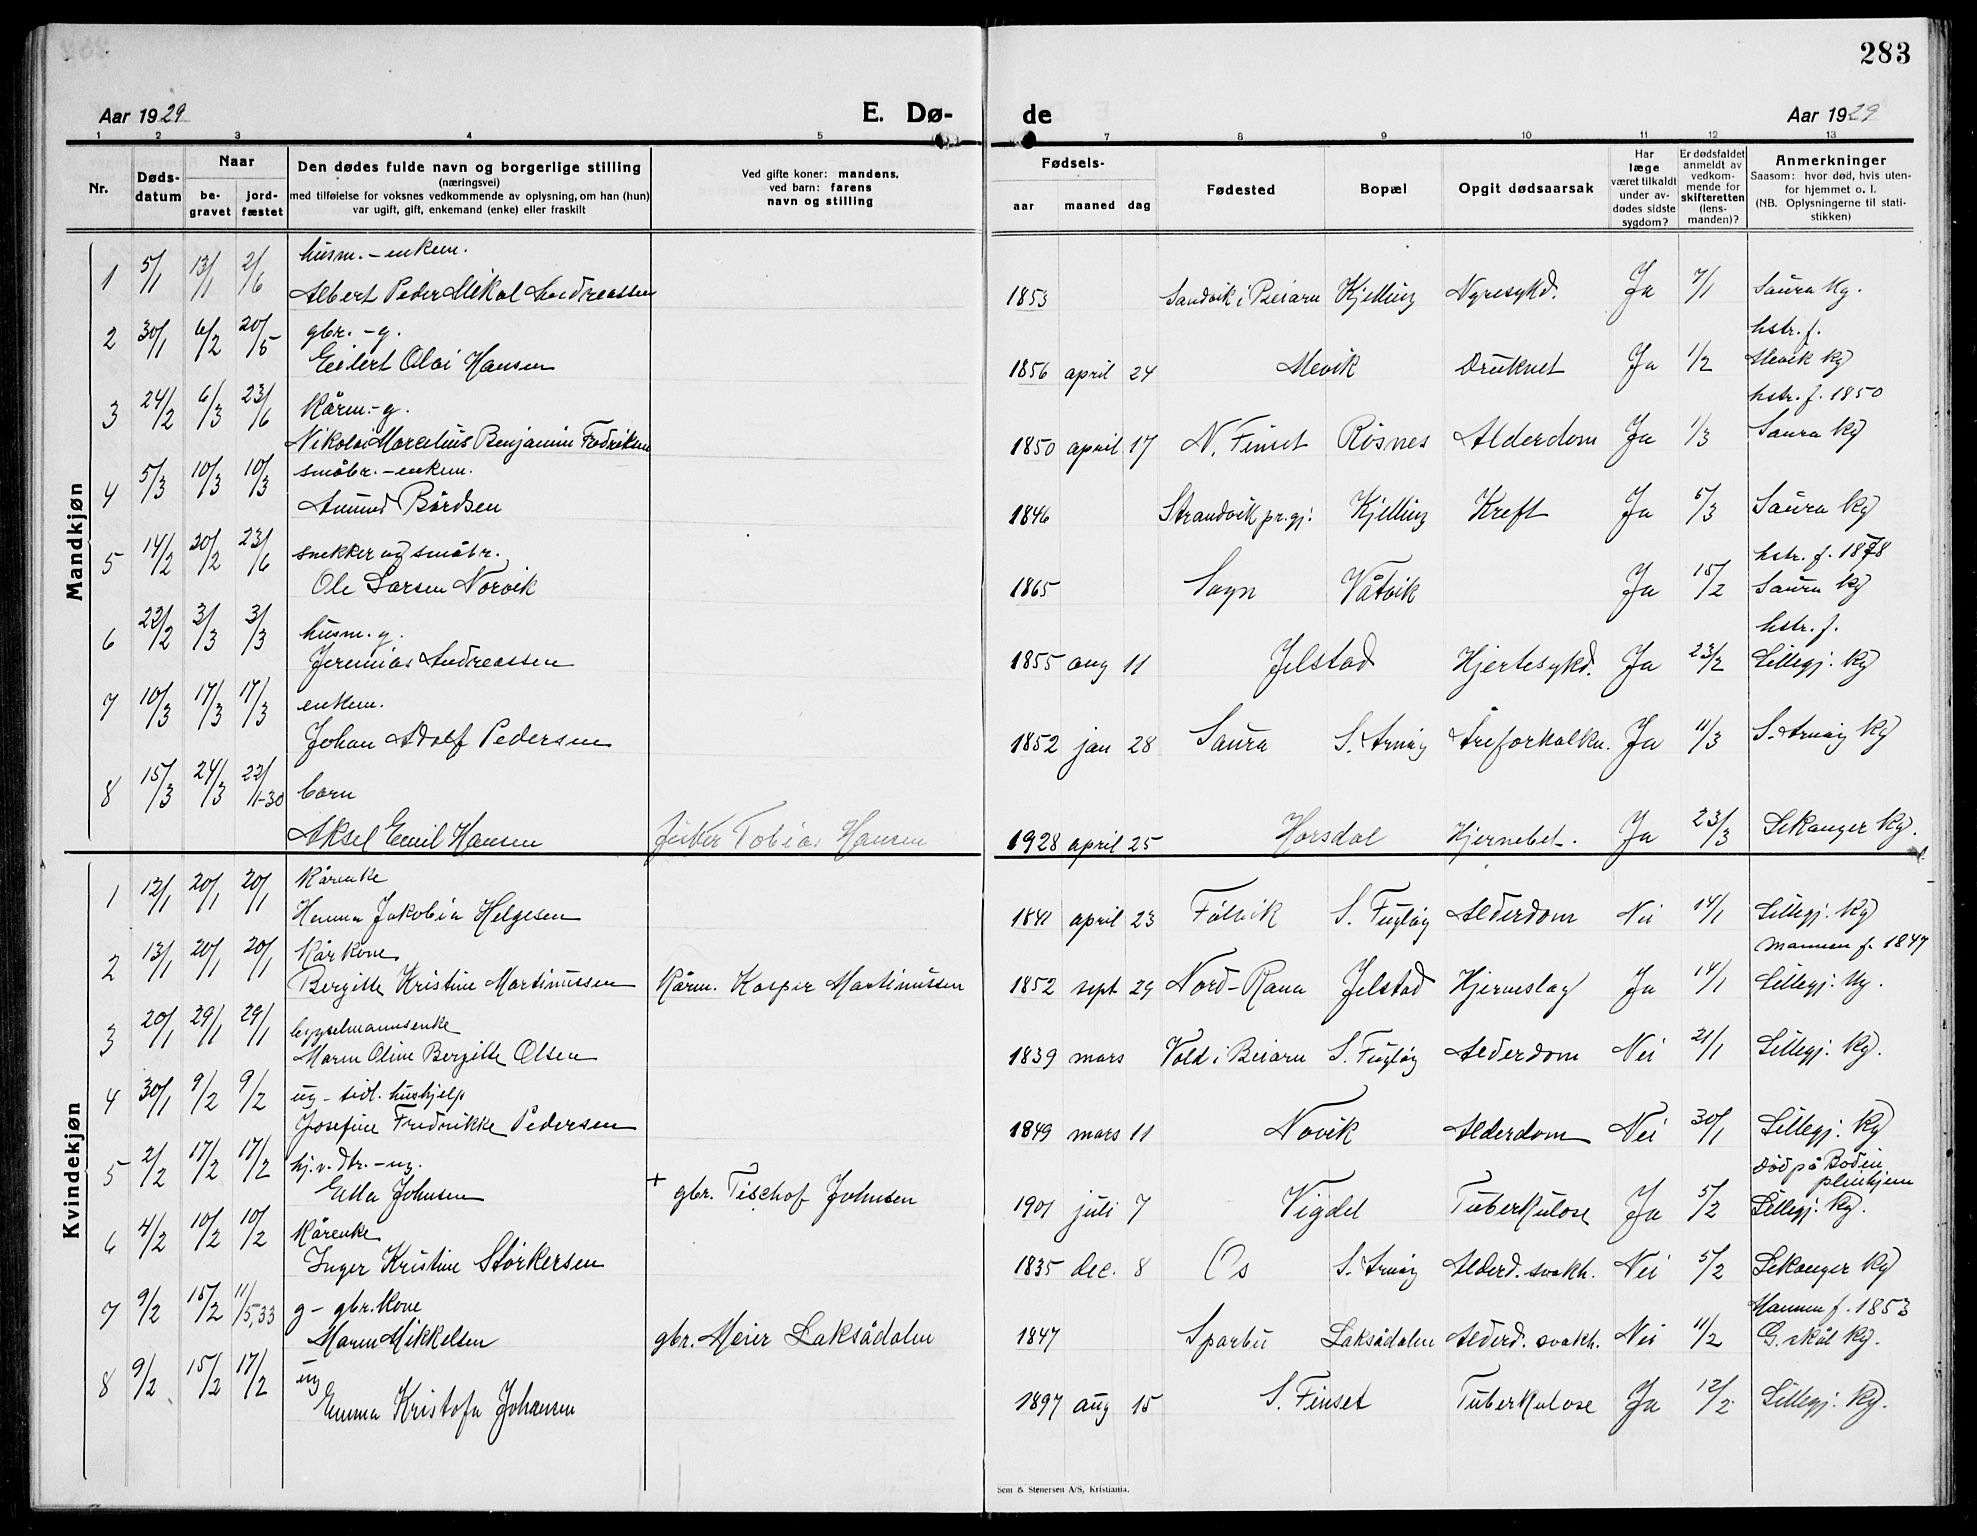 283
Aar 1929 E. Dø- de Aar 1929
1 2 3 4 5 7 8 9 10 11 12 13
Nr. Dødsdatum Naar begravet jordfæstet
Den dødes fulde navn og borgerlige stilling (næringsvei) med tilføielse for voksnes vedkommende av oplysning, om han (hun) var ugift, gift, enkemand (enke) eller fraskilt
Ved gifte koner: mandens, ved barn: farens navn og stilling
Fødsels- aar maaned dag
Fødested
Bopæl
Opgit dødsaarsak
Har læge været tilkaldt under avdødes sidste sygdom?
Er dødsfaldet anmeldt av vedkommende for skifteretten (lensmanden)?
Anmerkninger Saasom: hvor død, hvis utenfor hjemmet o. l. (NB. Oplysningerne til statistikken)
Mandkjøn
1 5/1 13/1 2/6 husm. - enkem.
Albert Peder Mikal Andreassen 1853 Sandvik i Beiarn Kjelling Nyresykd. Ja 7/1 Saura kg.
2 30/1 6/2 20/5 gbr. - g. hstr. f.
Eilert Olai Hansen 1856 april 24 Mevik Druknet Ja 1/2 Mevik kg
3 24/2 6/3 23/6 Kårm. - g. hstr. f. 1850
Nikolai Marcelius Benjamin Fredriksen 1850 april 17 N. Finset Røsnes Alderdom Ja 1/3 Saura kg
4 5/3 10/3 10/3 småbr. - enkem.
Amund Bårdsen 1846 Strandvik pr. gj. Kjelling Kreft Ja 5/3 Saura kg
5 14/2 20/2 23/6 snekker og småbr. hstr. f. 1878
Ole Larsen Norvik 1865 Sogn Våtvik Ja 15/2 Saura kg
6 22/2 3/3 3/3 husm. g. hstr. f.
Jeremias Andreassen 1855 aug 11 Jelstad Hjertesykd. Ja 23/2 Lillegj. kg
7 10/3 17/3 17/3 enkem.
Johan Adolf Pedersen 1852 jan 28 Saura S. Arnøy Åreforkalkn. Ja 11/3 S. Arnøy kg
8 15/3 24/3 22/1-30 barn
Aksel Emil Hansen Tobias Hansen 1928 april 25 Horsdal Hjernebet. Ja 23/3 Sekanger kg.
Kvindekjøn
1 12/1 20/1 20/1 Kårenke
Hanna Jakobia Helgesen 1841 april 23 Følvik S. Fugløy Alderdom Nei 14/1 Lillegj. kg
2 13/1 20/1 20/1 Kårkone mannen f. 1847
Bergitte Kristine Martinussen Kårm. Kasper Martinussen 1852 sept 29 Nord-Rana Jelstad Hjerneslag Ja 14/1 Lillegj. kg.
3 20/1 29/1 29/1 bygselmannsenke
Maren Oline Bergitte Olsen 1839 mars Vold i Beiarn S. Fugløy Alderdom Nei 21/1 Lillegj. kg.
4 30/1 9/2 9/2 ug - tidl. hushjelp
Josefine Fredrikke Pedersen 1849 mars 11 Novik Alderdom Nei 30/1 Lillegj. kg
5 2/2 17/2 17/2 hj.v. dtr. - ug. død på Bodin pleiehjem
Etta Johnsen + gbr. Tischof Johnsen 1901 juli 7 Vigdel Tuberkulose Ja 5/2 Lillegj. kg.
6 4/2 10/2 10/2 Kårenke
Inger Kristine Størkersen 1835 dec. 8 Os S. Arnøy Alderd. svakh. Nei 5/2 Sekanger kg
7 9/2 15/2 11/5,33 g - gbr. kone Mannen f. 1853
Maren Mikkelsen gbr. Meier Laksådalen 1847 Sparbu Laksådalen Alderd. svakh. Nei 11/2 G.skål kg.
8 9/2 15/2 17/2 ug
Emma Kristofa Johansen 1897 aug 15 S. Finset Tuberkulose Ja 12/2 Lillegj. kg.
Sem & Stenersen A/S, Kristiania.